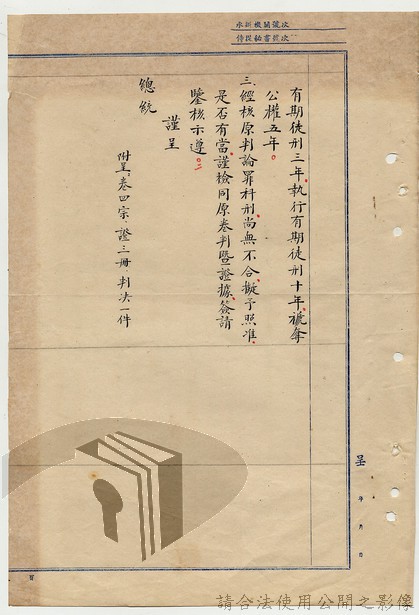 機關號次
秘書號次
有期徒刑三年，執行有期徒刑十年，褫奪
公權五年。
三、經核原判論罪科刑，尚無不合，擬予照准，
是否有當，謹檢同原卷判暨證據，簽請
鑒核示遵。
謹呈
總統
附呈卷四宗、證三冊、判決一件
呈 年 月 日
頁
請合法使用公開之影像